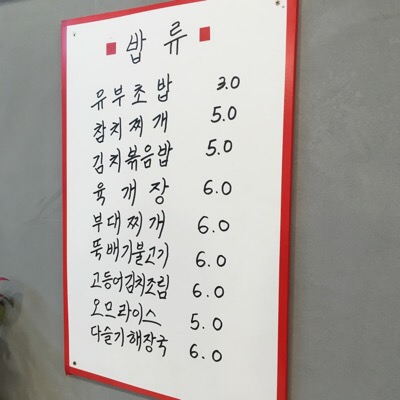 밥 류
유부초밥 3.0
참치찌개 5.0
김치볶음밥 5.0
육개장 6.0
부대찌개 6.0
뚝배기불고기 6.0
고등어김치조림 6.0
오므라이스 5.0
다슬기해장국 6.0